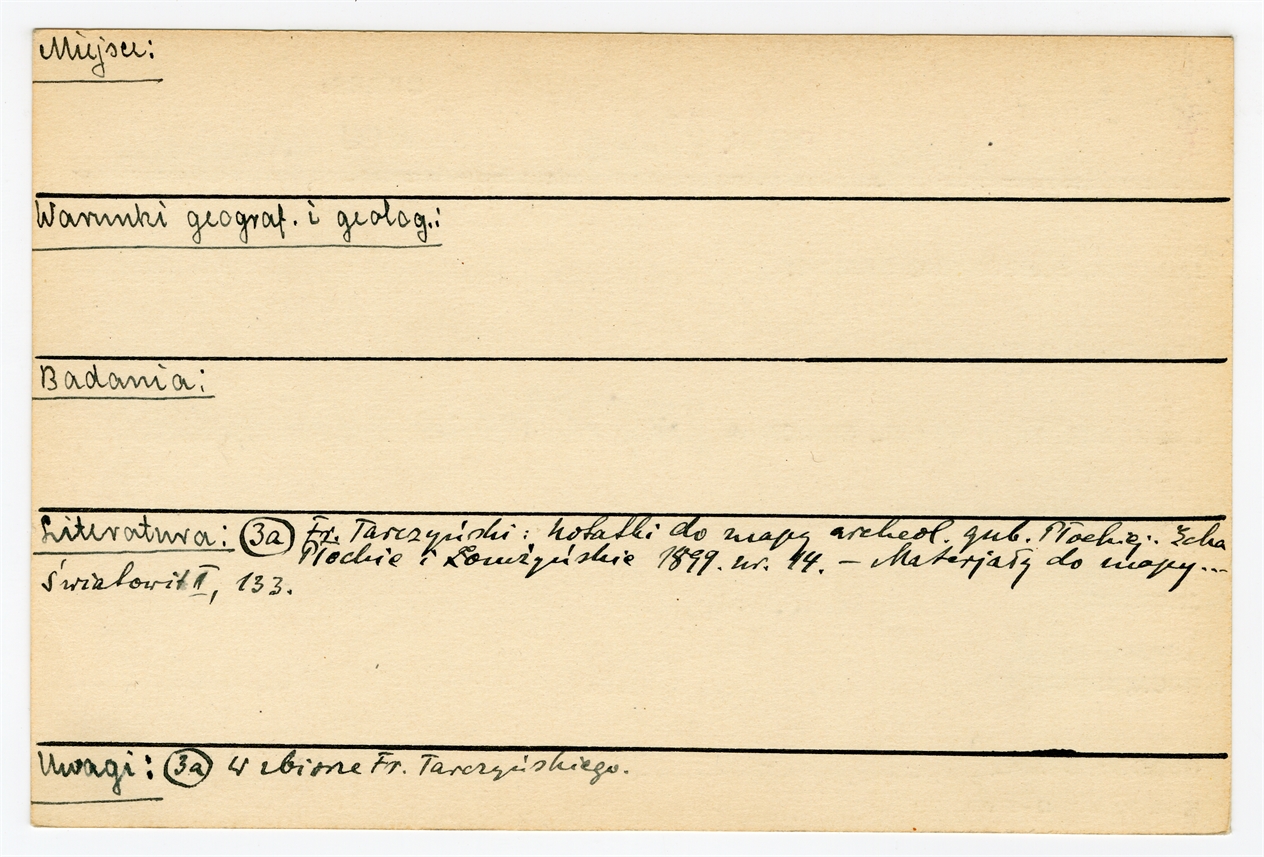 Miejsce:
Warunki geograf. i geolog.:
Badania:
Literatura: (3a) Fr. Tarczyński: Notatki do mapy archeol. gub. Płockiej. Echa
Płockie i Łomżyńskie 1899. nr. 44. – Materjały do mapy...
Światowit I, 133.
Uwagi: (3a) W zbiorze Fr. Tarczyńskiego.